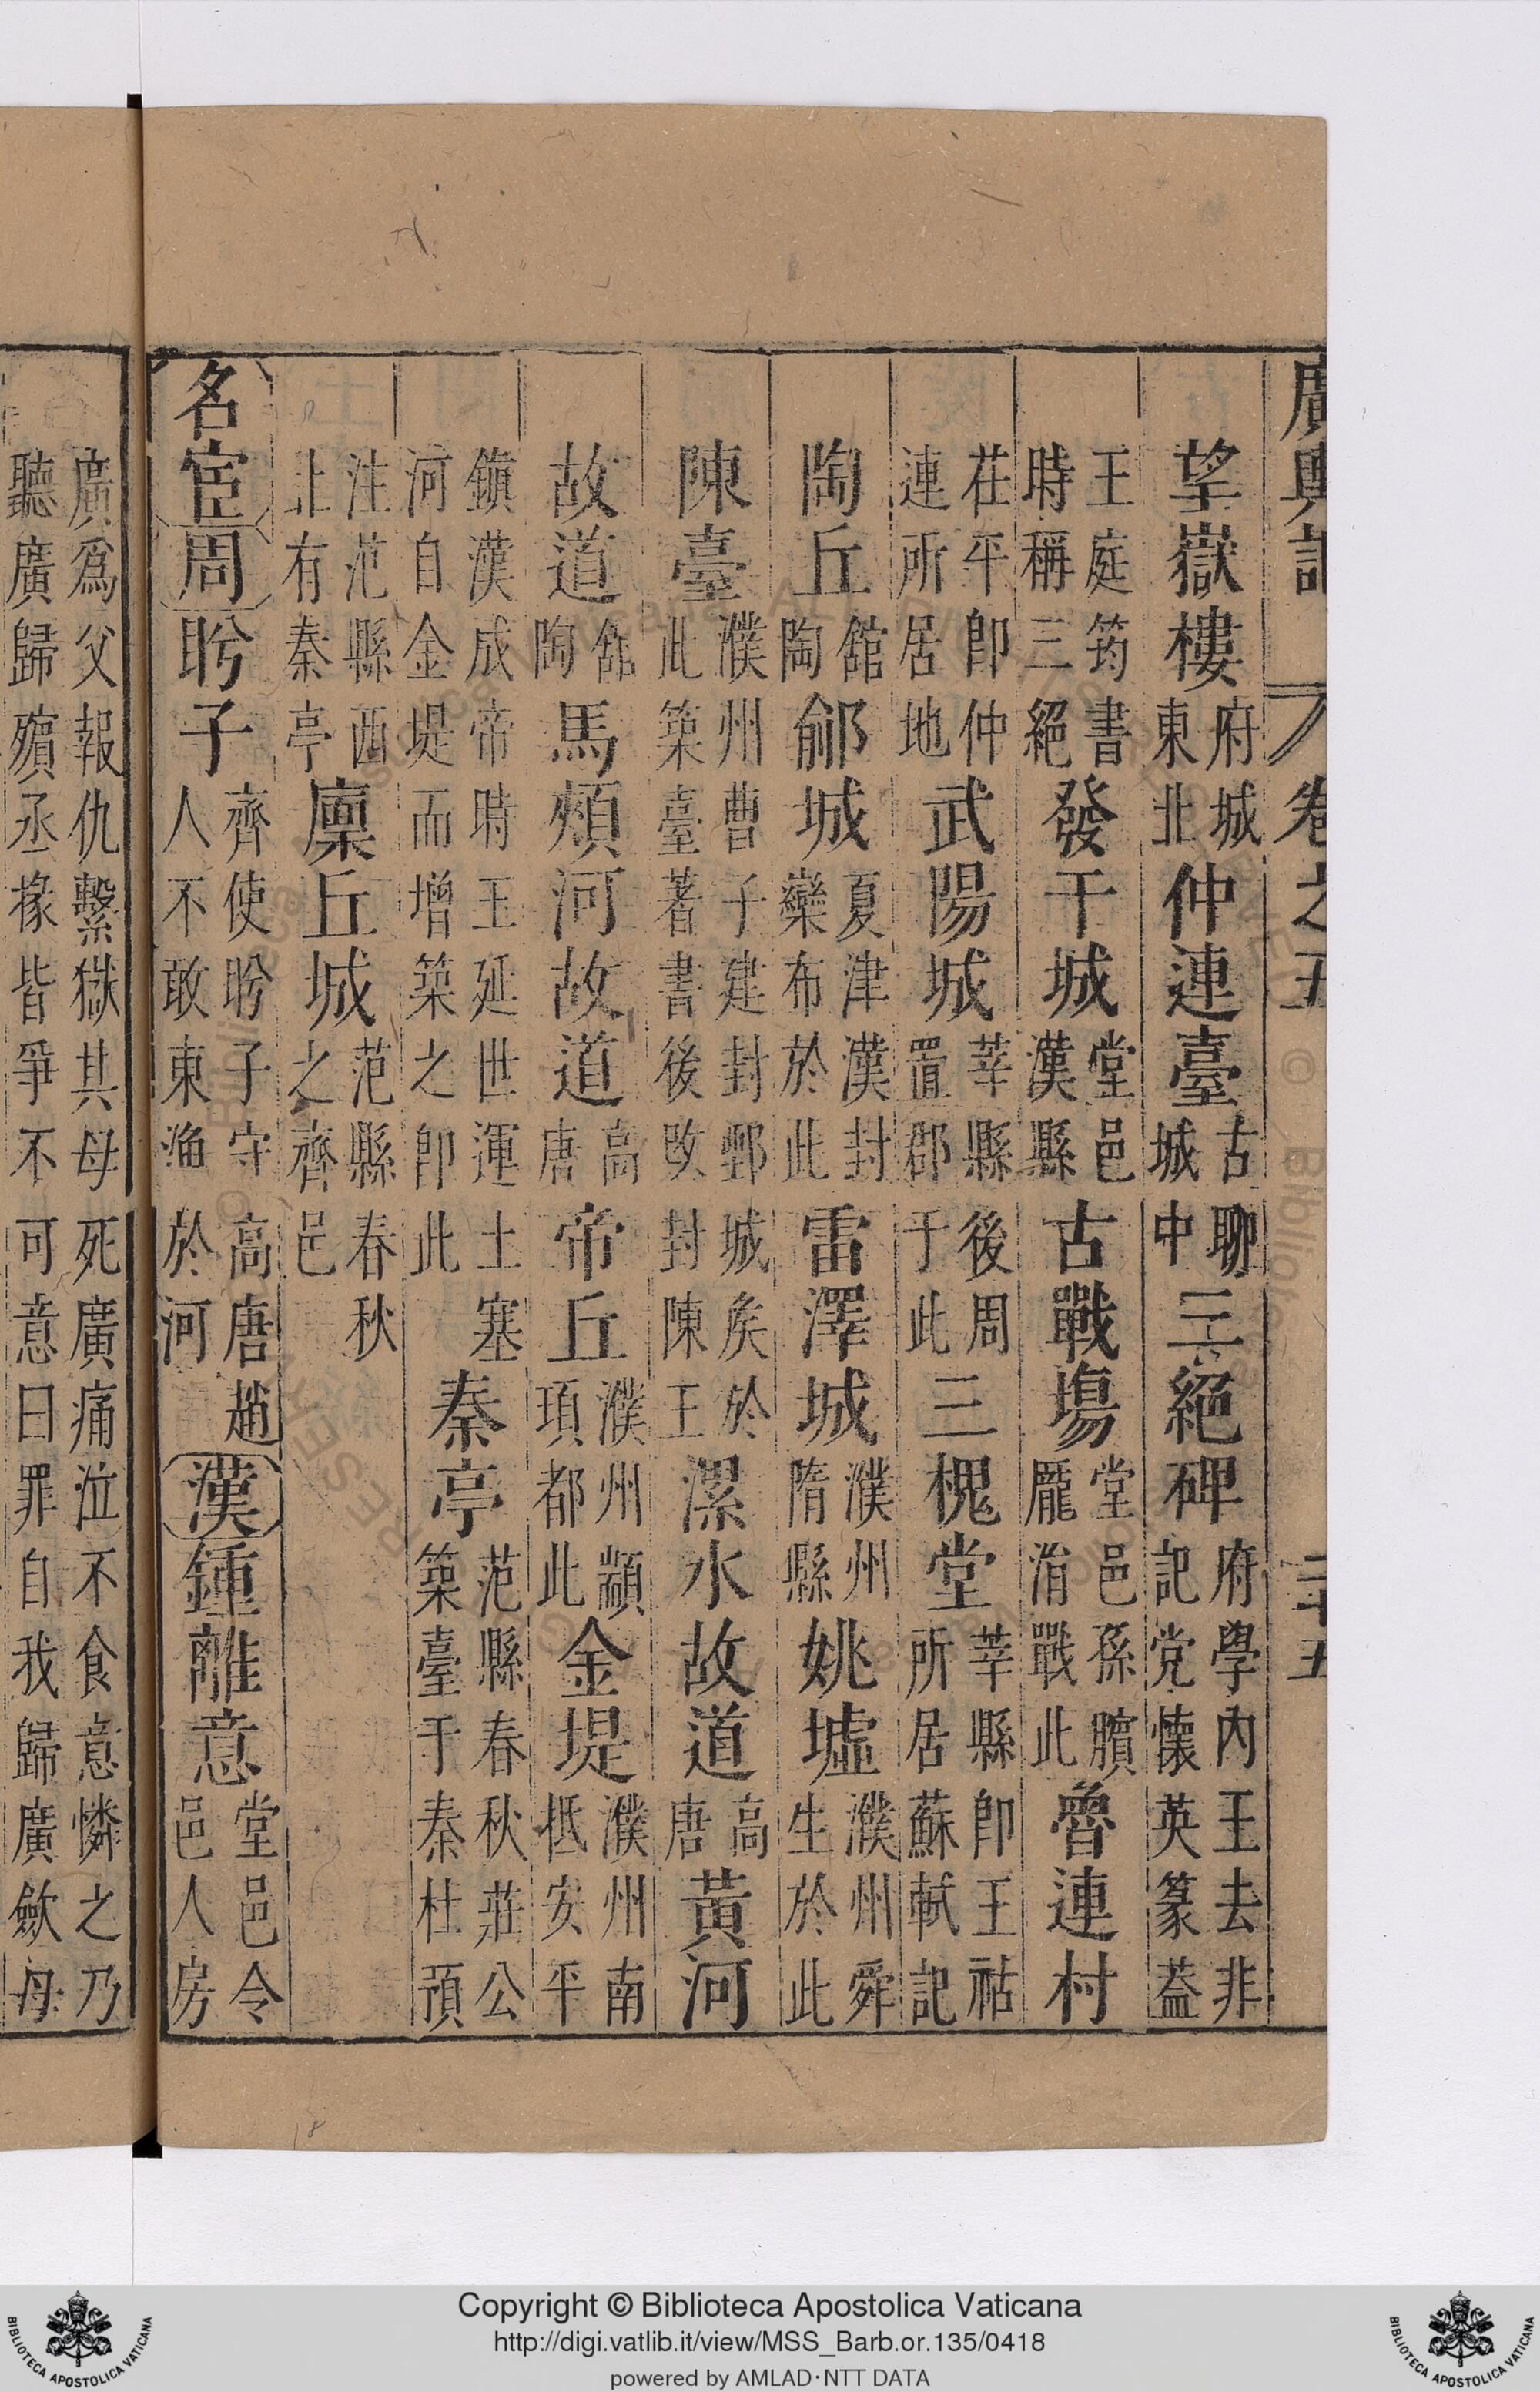 廣輿記 卷之五 二十五
望嶽樓府城東北仲連臺古聊城中三絕碑府學內王去非記党懷英篆蓋
王庭筠書時稱三絕發干城堂邑漢縣古戰塲堂邑孫臏龎涓戰此魯連村
茌平卽仲連所居地武陽城莘縣後周置郡于此三槐堂莘縣卽王祜所居蘇軾記
陶丘舘陶鄃城夏津漢封欒布於此雷澤城濮州隋縣姚墟濮州舜生於此
陳臺濮州曹子建封鄄城矦於此築臺著書後改封陳王漯水故道高唐黃河
故道舘陶馬頰河故道高唐帝丘濮州顓頊都此金堤濮州南抵安平
鎮漢成帝時王延世運土塞河自金堤而增築之卽此秦亭范縣春秋莊公築臺于秦杜預
注范縣西北有秦亭廩丘城范縣春秋之齊邑
名宦周盻子齊使盻子守高唐趙人不敢東漁於河漢鍾離意堂邑令邑人房
廣爲父報仇繫獄其母死廣痛泣不食意憐之乃
聽廣歸殯丞掾皆爭不可意曰罪自我歸廣斂母
Copyright © Biblioteca Apostolica Vaticana
http://digi.vatlib.it/view/MSS_Barb.or.135/0418
powered by AMLAD·NTT DATA
BIBLIOTECA APOSTOLICA VATICANA
BIBLIOTECA APOSTOLICA VATICANA